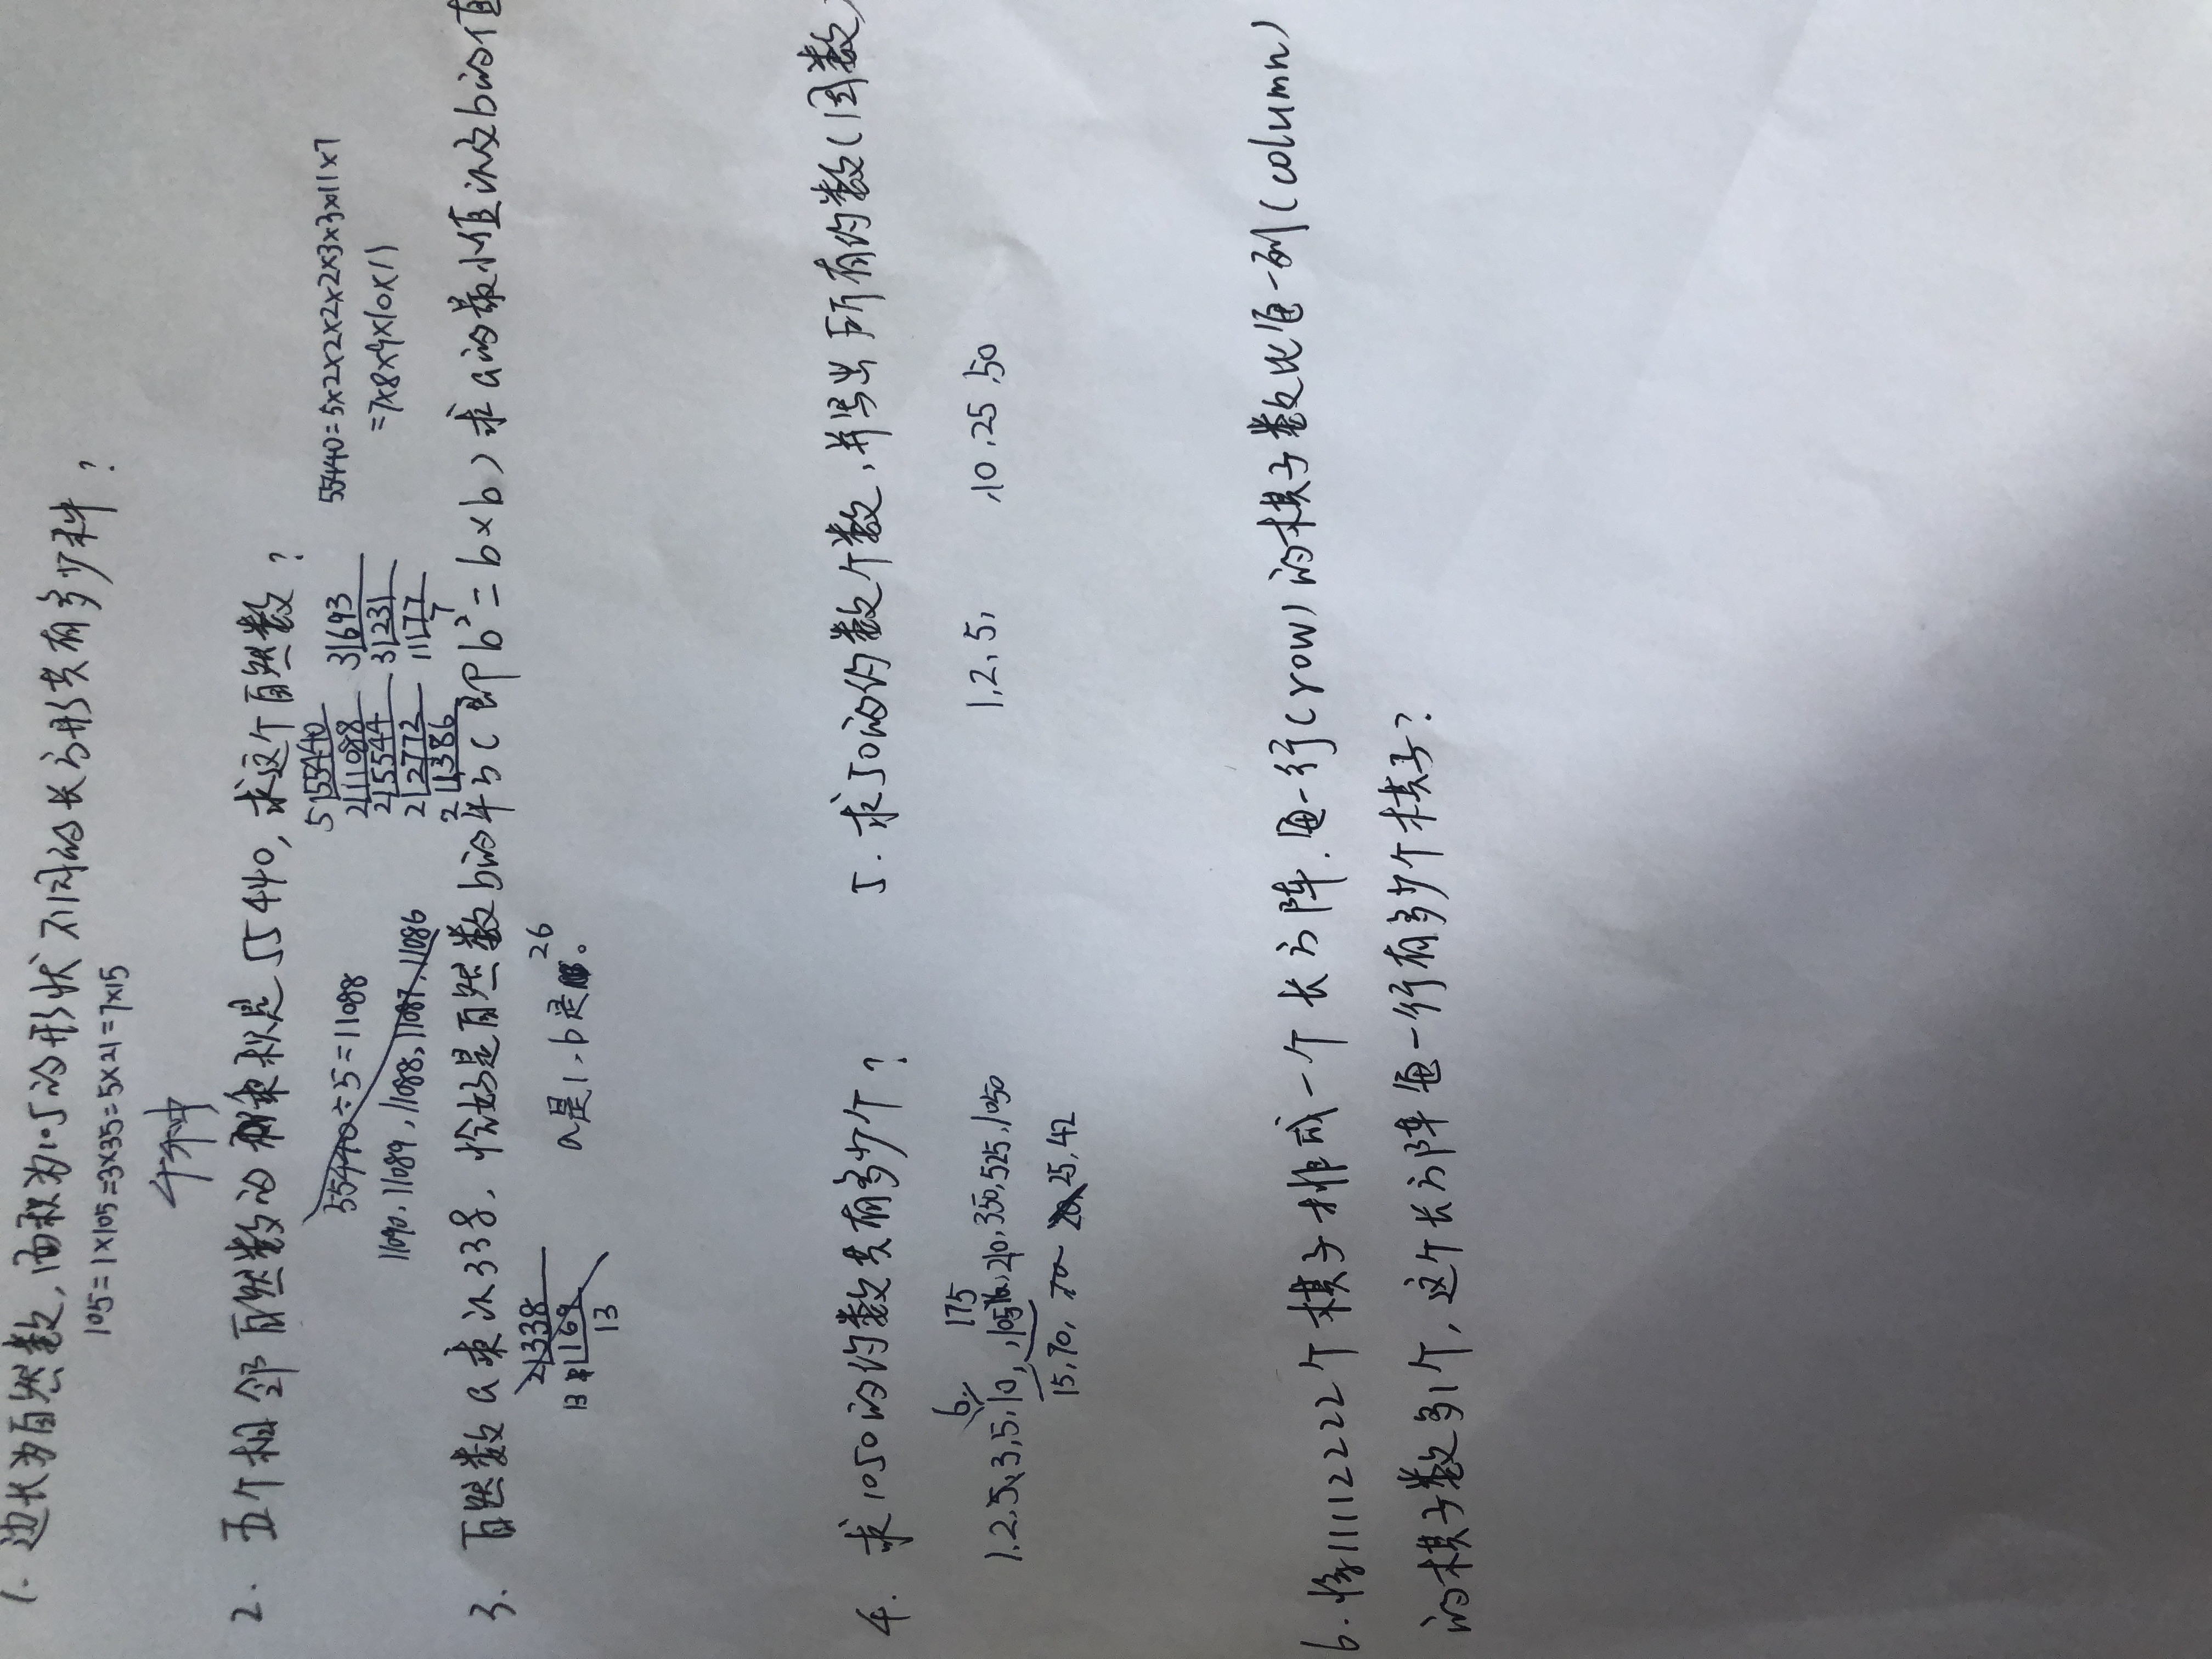 1. 边长为自然数,面积为105的形状不同的长方形共有多少种?
105=1×105=3×35=5×21=7×15
4种
2. 五个相邻自然数的乘积是55440,求这个自然数?
55440÷5=11088
11090,11089,11088,11087,11086
5 55440
2 11088
2 5544
2 2772
2 1386
3 693
3 231
11 77
7
55440=5×2×2×2×2×3×3×11×7
=7×8×9×10×11
3. 自然数a乘以338,恰好是自然数b的平方(即b²=b×b)求a的最小值以及b的值
2 338
13 169
13
a是1,b是26。
4. 求1050的约数共有多少个?
6. 175
1.2.5.3,5,10, ,105,210,350,525,1050
15,70, 25,42
5. 求50的约数个数,并写出所有的约数(因数)
1,2,5, ,10,25,50
6. 将11112222个棋子排成一个长方阵.每一行(row)的棋子数比每一列(column)
的棋子数多1个,这个长方阵每一行有多少个棋子?